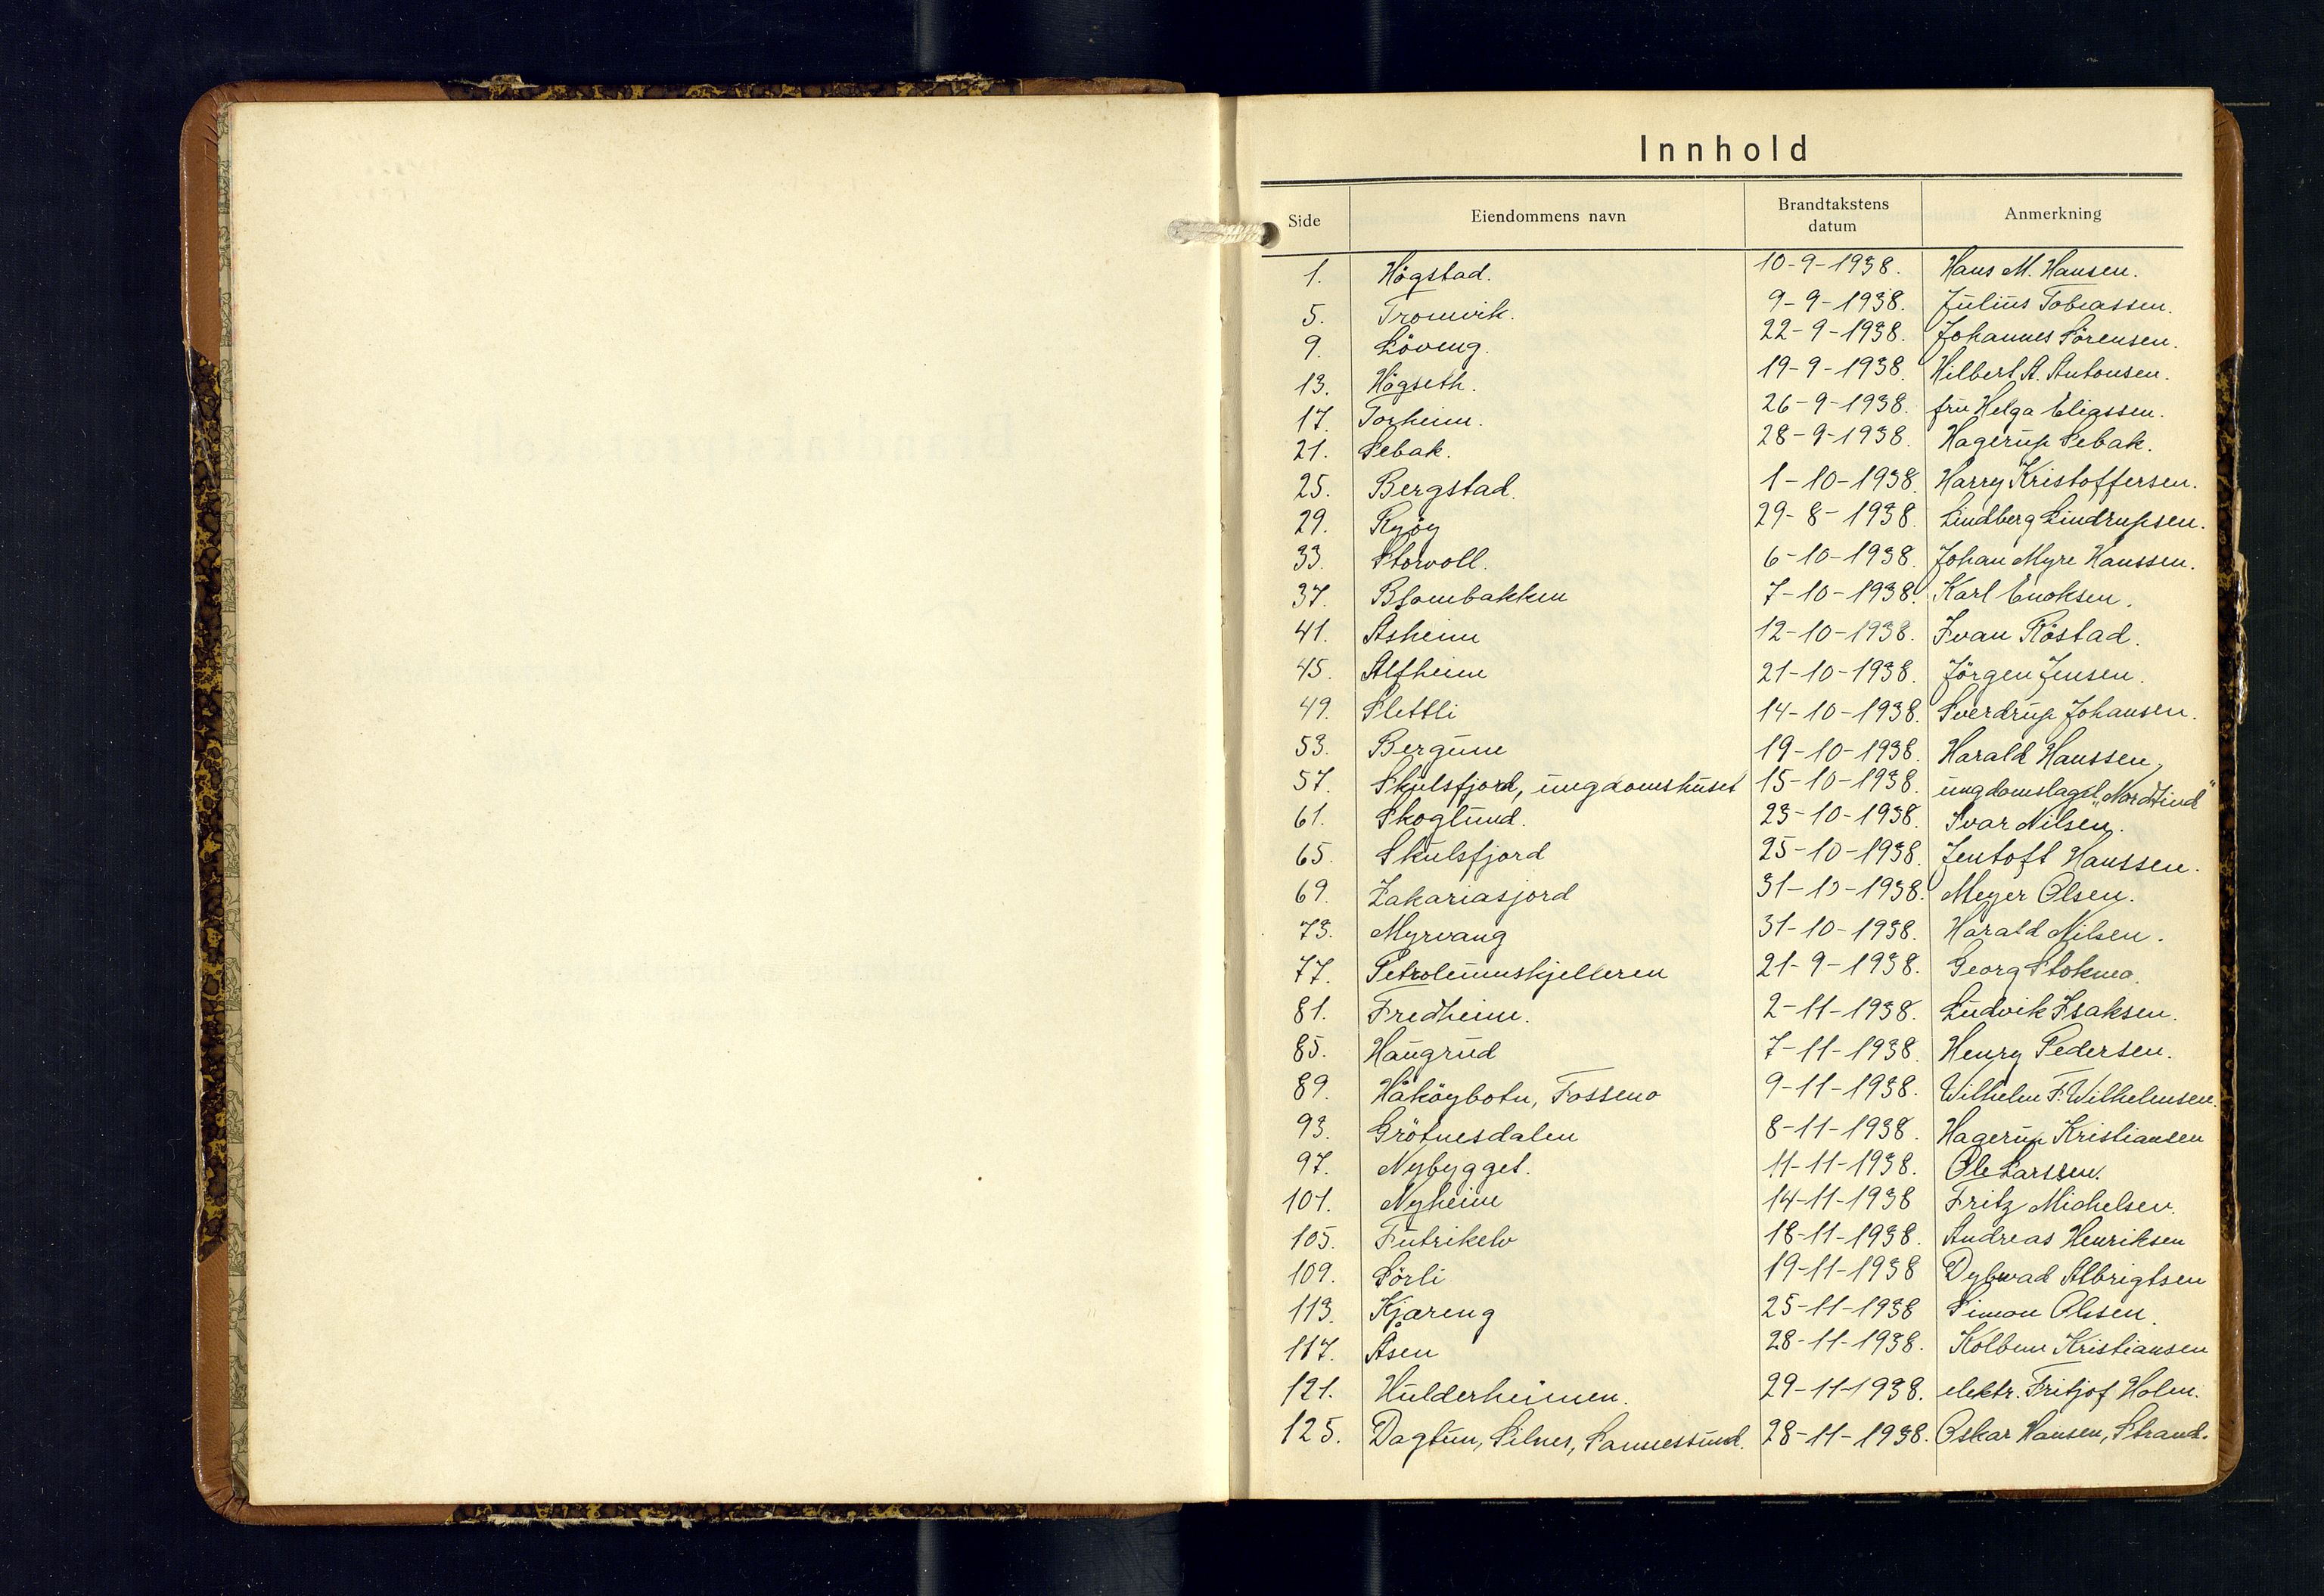 Innhold
Side Eiendommens navn Brandtakstens datum Anmerkning
1. Högstad. 10-9-1938. Hans M. Hansen.
5. Tromvik. 9-9-1938. Julius Tobiassen.
9. Löveng. 22-9-1938. Johannes Sörensen.
13. Högseth. 19-9-1938. Hilbert A. Antonsen.
17. Torheim. 26-9-1938. fru Helga Eliassen.
21. Sebak. 28-9-1938. Hagerup Sebak.
25. Bergstad. 1-10-1938. Harry Kristoffersen.
29. Ryöy 29-8-1938. Lindberg Lindrupsen.
33. Storvoll. 6-10-1938. Johan Myre Hanssen.
37. Blombakken 7-10-1938. Karl Enoksen.
41. Asheim 12-10-1938. Ivan Röstad.
45. Alfheim 21-10-1938. Jörgen Jensen.
49. Slettli 14-10-1938. Sverdrup Johansen.
53. Bergum 19-10-1938. Harald Hanssen,
57. Skulsfjord, ungdomshuset 15-10-1938. ungdomslaget „Nordtind"
61. Skoglund. 23-10-1938. Ivar Nilsen.
65. Skulsfjord 25-10-1938. Jentoft Hanssen.
69. Zakariasjord 31-10-1938. Meyer Olsen.
73. Myrvang 31-10-1938. Harald Nilsen.
77. Petroleumskjelleren 21-9-1938. Georg Stokmo.
81. Fredheim. 2-11-1938. Ludvik Isaksen.
85. Haugrud 7-11-1938. Henry Pedersen.
89. Håköybotn, Fossmo 9-11-1938. Wilhelm F. Wilhelmsen.
93. Grötnesdalen 8-11-1938. Hagerup Kristiansen
97. Nybygget. 11-11-1938. Ole Larssen.
101. Nyheim 14-11-1938 Fritz Michelsen.
105. Futrikelv 18-11-1938. Andreas Henriksen
109. Sörli 19-11-1938 Dybwad Albrigtsen
113. Kjæreng 25-11-1938 Simon Olsen.
117. Åsen 28-11-1938. Kolbenn Kristiansen
121. Hulderheimen. 29-11-1938. elektr. Fritjof Holm.
125. Dagtun, Silnes, Sannessund. 28-11-1938. Oskar Hansen, Strand.